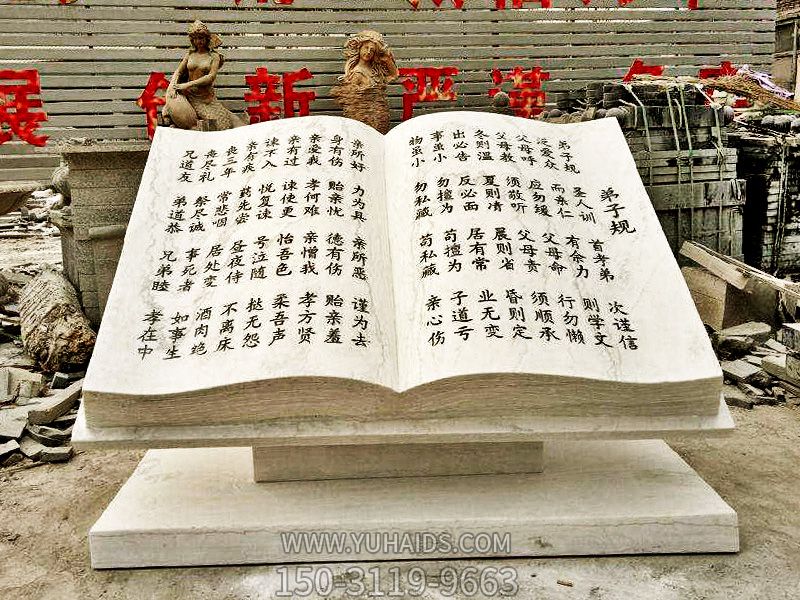 展 创 新 严 谨
弟子规
弟子规 圣人训 首孝弟 次谨信
泛爱众 而亲仁 有余力 则学文
父母呼 应勿缓 父母命 行勿懒
父母教 须敬听 父母责 须顺承
冬则温 夏则凊 晨则省 昏则定
出必告 反必面 居有常 业无变
事虽小 勿擅为 苟擅为 子道亏
物虽小 勿私藏 苟私藏 亲心伤
亲所好 力为具 亲所恶 谨为去
身有伤 贻亲忧 德有伤 贻亲羞
亲爱我 孝何难 亲憎我 孝方贤
亲有过 谏使更 怡吾色 柔吾声
谏不入 悦复谏 号泣随 挞无怨
亲有疾 药先尝 昼夜侍 不离床
丧三年 常悲咽 居处变 酒肉绝
丧尽礼 祭尽诚 事死者 如事生
兄道友 弟道恭 兄弟睦 孝在中
WWW.YUHAIDS.COM
150-3119-9663